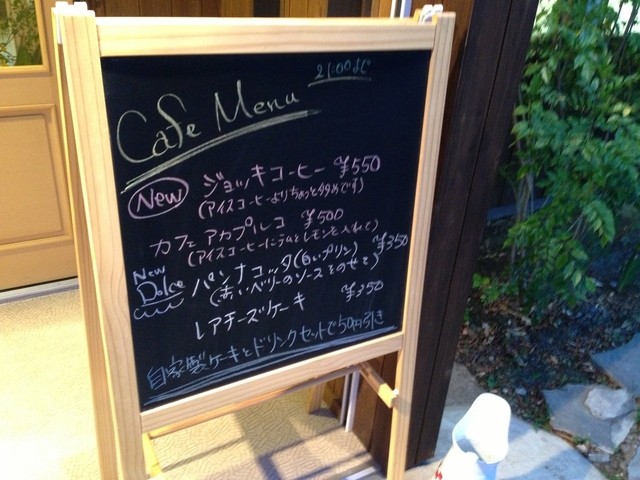 21:00まで
Cafe Menu
New ジョッキコーヒー ¥550
(アイスコーヒーよりちょっと多めです)
カフェ アカプルコ ¥500
(アイスコーヒーにラムとレモンを入れて)
New Dolce パンナコッタ(白いプリン) ¥350
(赤いベリーのソースをのせて)
レアチーズケーキ ¥350
自家製ケーキとドリンクセットで50円引き